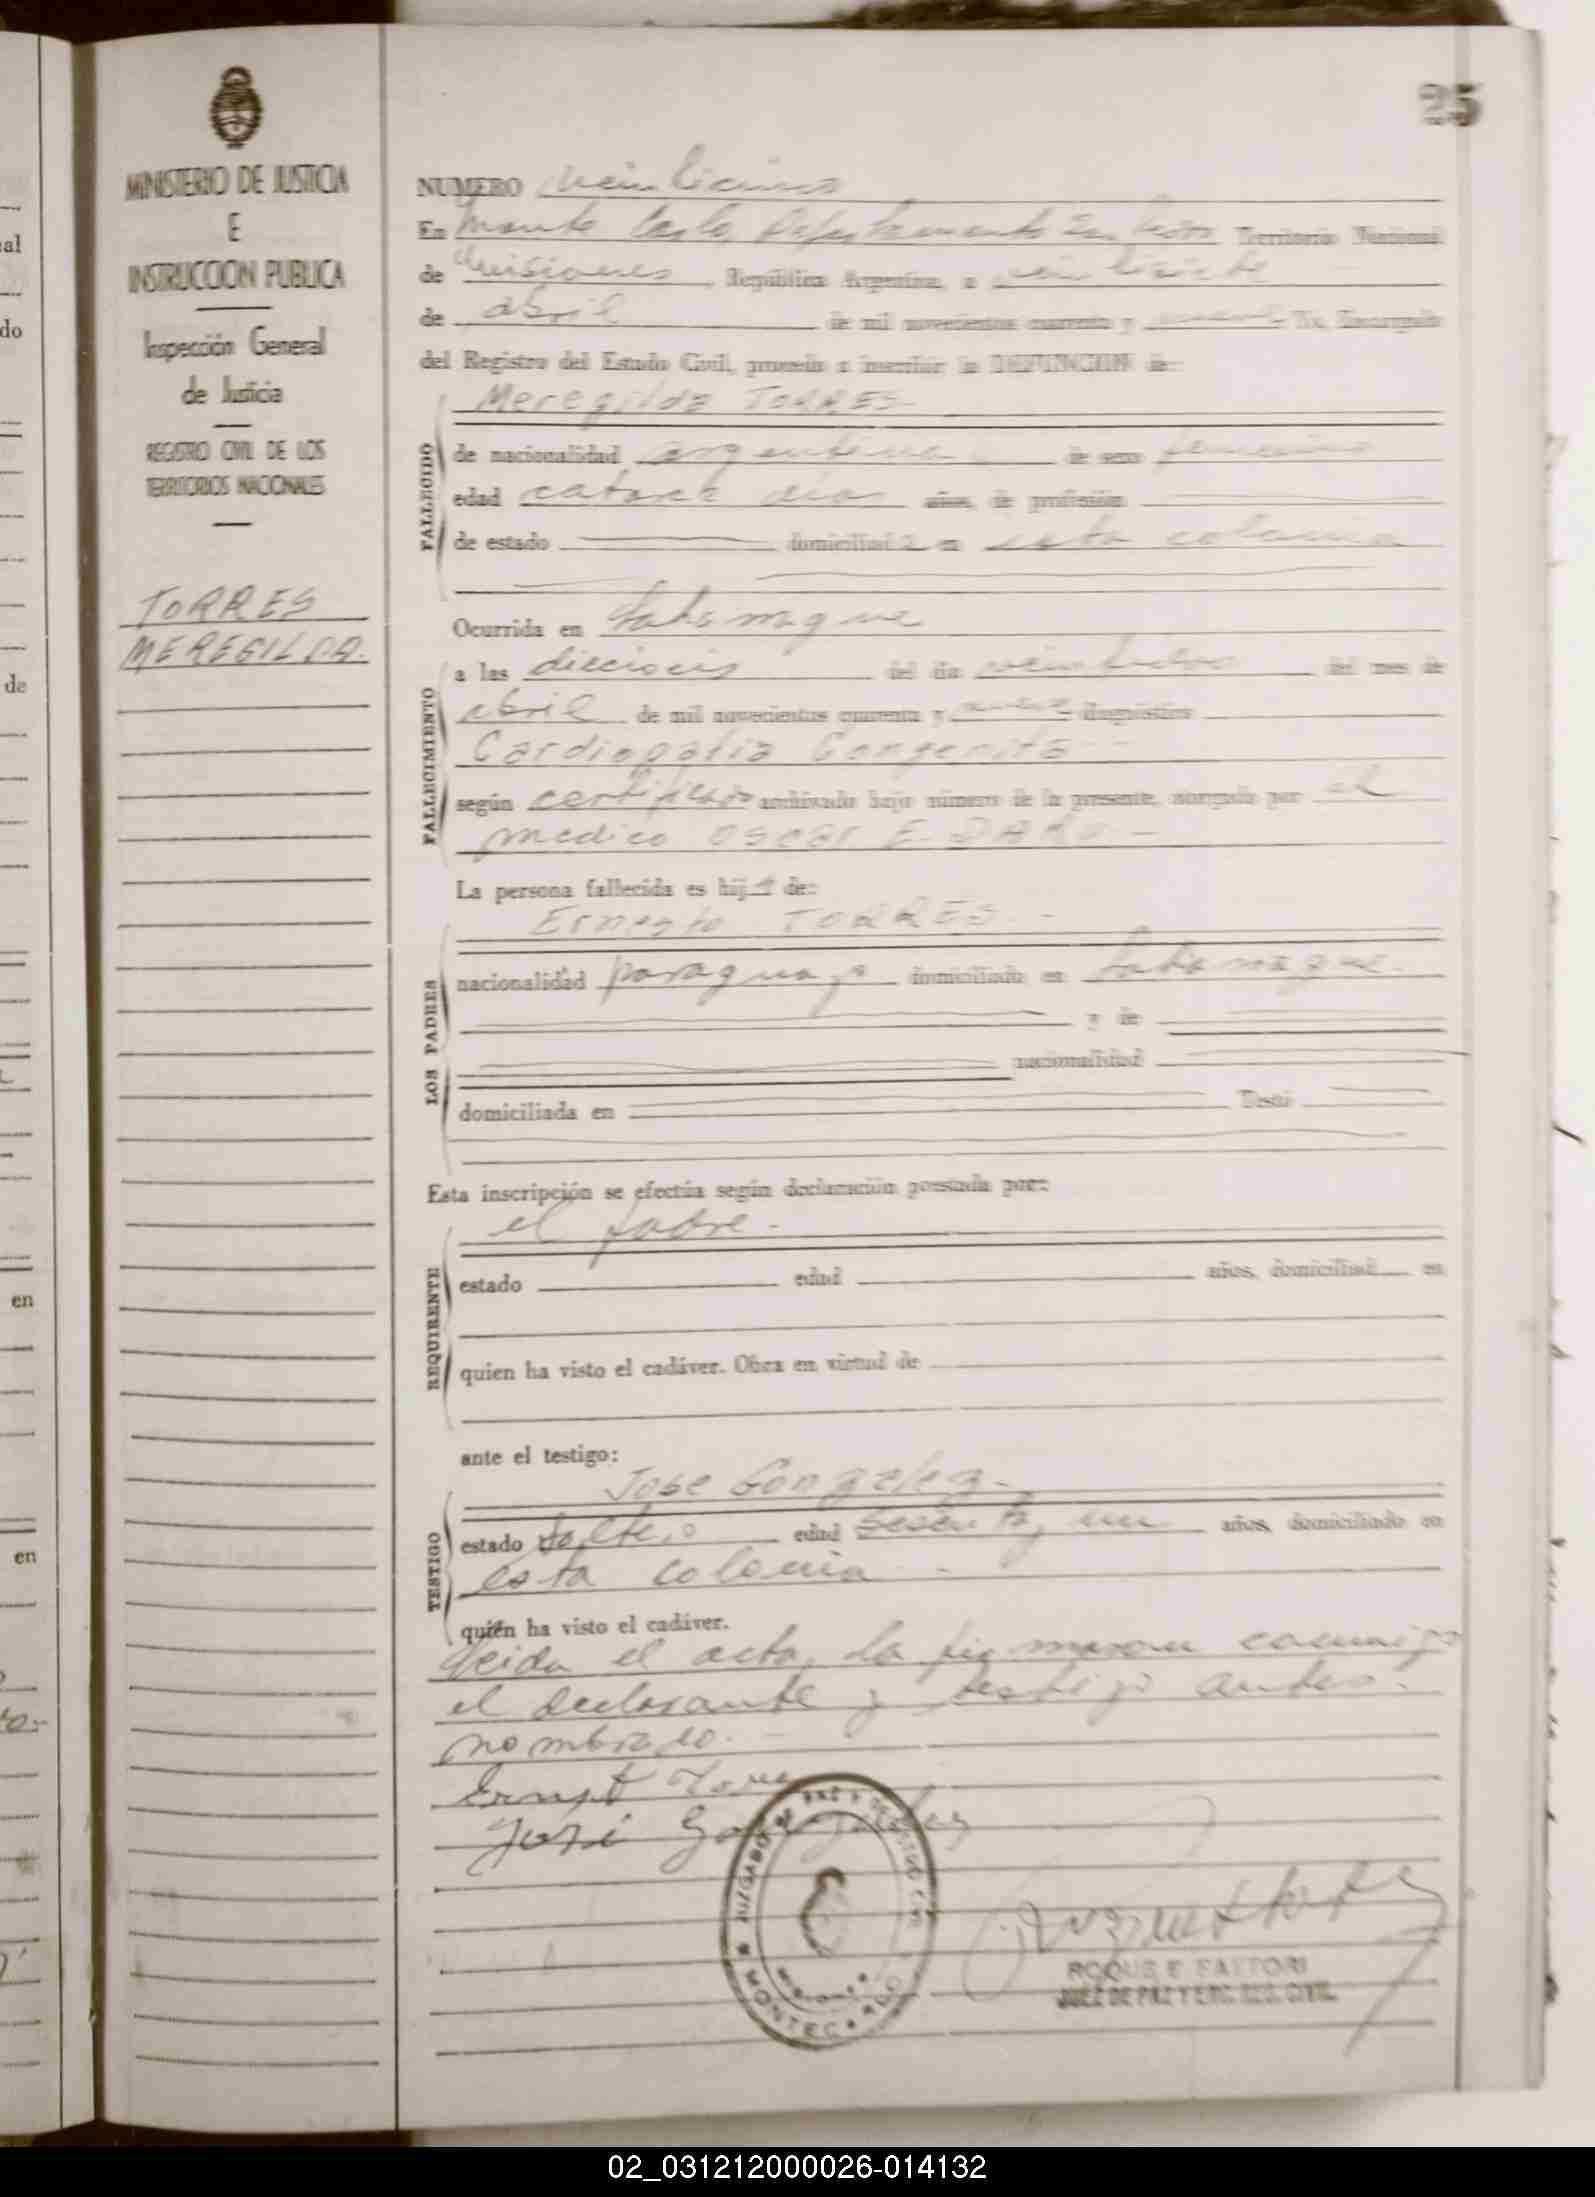 25
MINISTERIO DE JUSTICIA
E
INSTRUCCION PUBLICA
Inspección General
de Justicia
REGISTRO CIVIL DE LOS
TERRITORIOS NACIONALES
TORRES
MEREGILDA.
NUMERO veinticinco
En Monte Carlo, Departamento San Pedro Territorio Nacional
de Misiones, República Argentina, a veintisiete
de abril de mil novecientos cuarenta y Yo, Encargado
del Registro del Estado Civil, procedo a inscribir la DEFUNCION de:
Meregilda TORRES-
FALLECIDO
de nacionalidad argentina de sexo femenino
edad catorce días años, de profesión
de estado domiciliad a en esta colonia
Ocurrida en
FALLECIMIENTO
a las dieciocis del día del mes de
abril de mil novecientos cuarenta y diagnóstico
Cardiopatia Congenita
según certificado archivado bajo número de la presente, otorgado por el
medico Oscar E.
La persona fallecida es hij a de:
Ernesto TORRES -
LOS PADRES
nacionalidad paraguayo domiciliado en
y de
nacionalidad
domiciliada en
Esta inscripción se efectúa según declaración prestada por:
el padre -
REQUIRENTE
estado edad años, domiciliad en
quien ha visto el cadáver. Obra en virtud de
ante el testigo:
Jose Gonzalez -
TESTIGO
estado soltero edad sesenta y un años, domiciliado en
esta colonia -
quién ha visto el cadáver.
Leida el acta, la firmaron conmigo
el declarante y testigo antes.
nombrado.
Ernest Torres
José Gonzalez
JUZGADO DE PAZ Y REGISTRO CIVIL
MISIONES
MONTECARLO
ROQUE E FATTORI
JUEZ DE PAZ Y ENC. REG. CIVIL
al
do
de
en
en
02_031212000026-014132